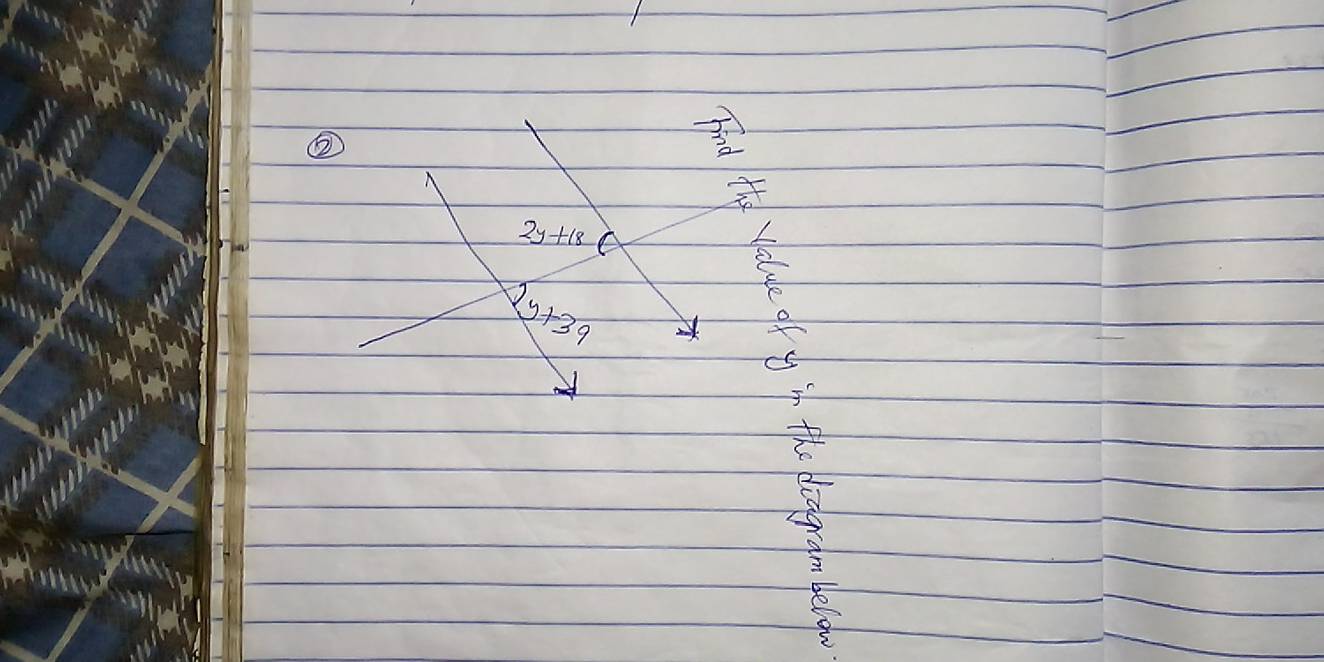 Find the value of y in the diagram below.
2y+18
y+39
②